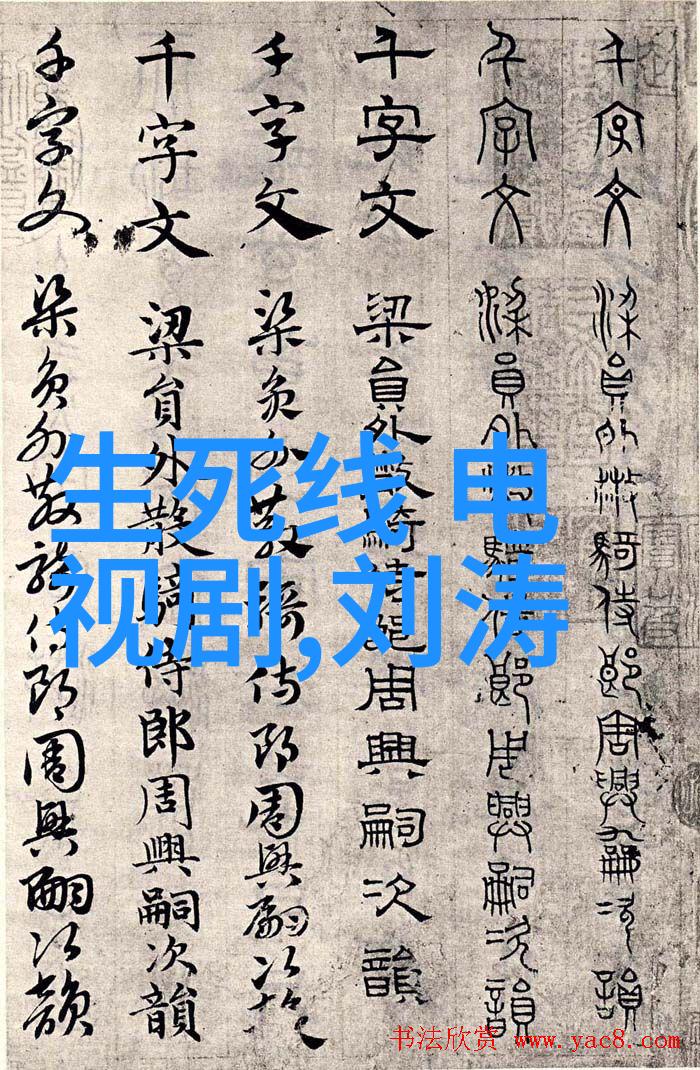 千字文 梁員外散騎侍郎周興嗣次韻
千字文 梁員外散騎侍郎周興嗣次韻
千字文 梁員外散騎侍郎周興嗣次韻
千字文 梁員外散騎侍郎周興嗣次韻
千字文 梁員外散騎侍郎周興嗣次韻
千字文 梁員外散騎侍郎周興嗣次韻
生死线 电
视剧,刘涛
书法欣赏 www.yac8.com